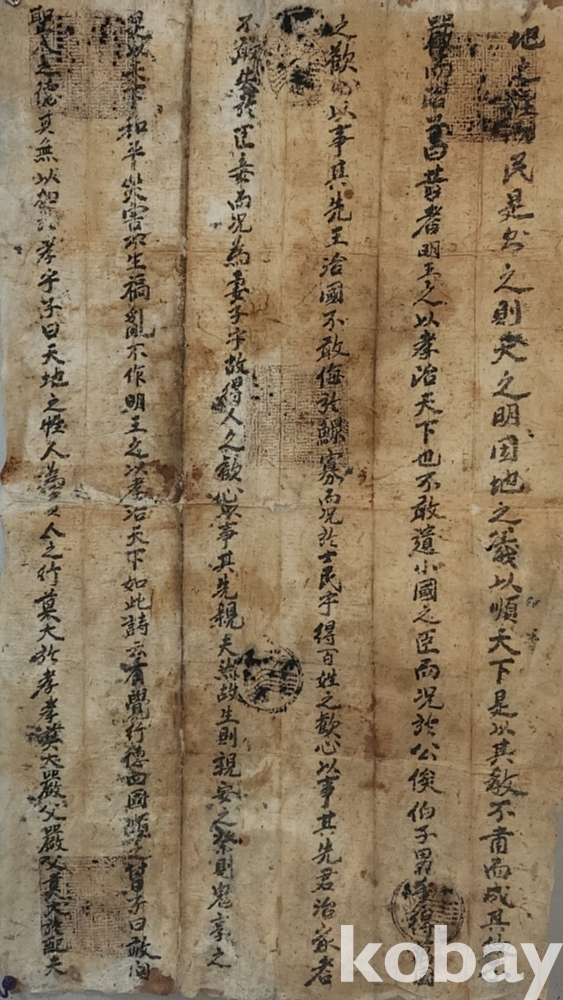 地之經 民是 之則天之明因地之義以順天下是以其教不肅而成其
嚴而治 曰昔者明王之以孝治天下也不敢遺小國之臣而况於公侯伯子男 得 國
之歡 以事其先王治國不敢侮於鰥寡而况於士民乎得百姓之歡心以事其先君治家者
不 失於臣妾而况為妻子乎故得人之歡心 事其先親夫然故生則親安之祭則鬼享之
是以天下和平災害不生禍亂不作明王之以孝治天下如此詩云有覺行德四國順之 子曰敢问
聖人之德其無以加於孝乎子曰天地之性人為 人之行莫大於孝孝莫大嚴父嚴父莫大於配天
kobay